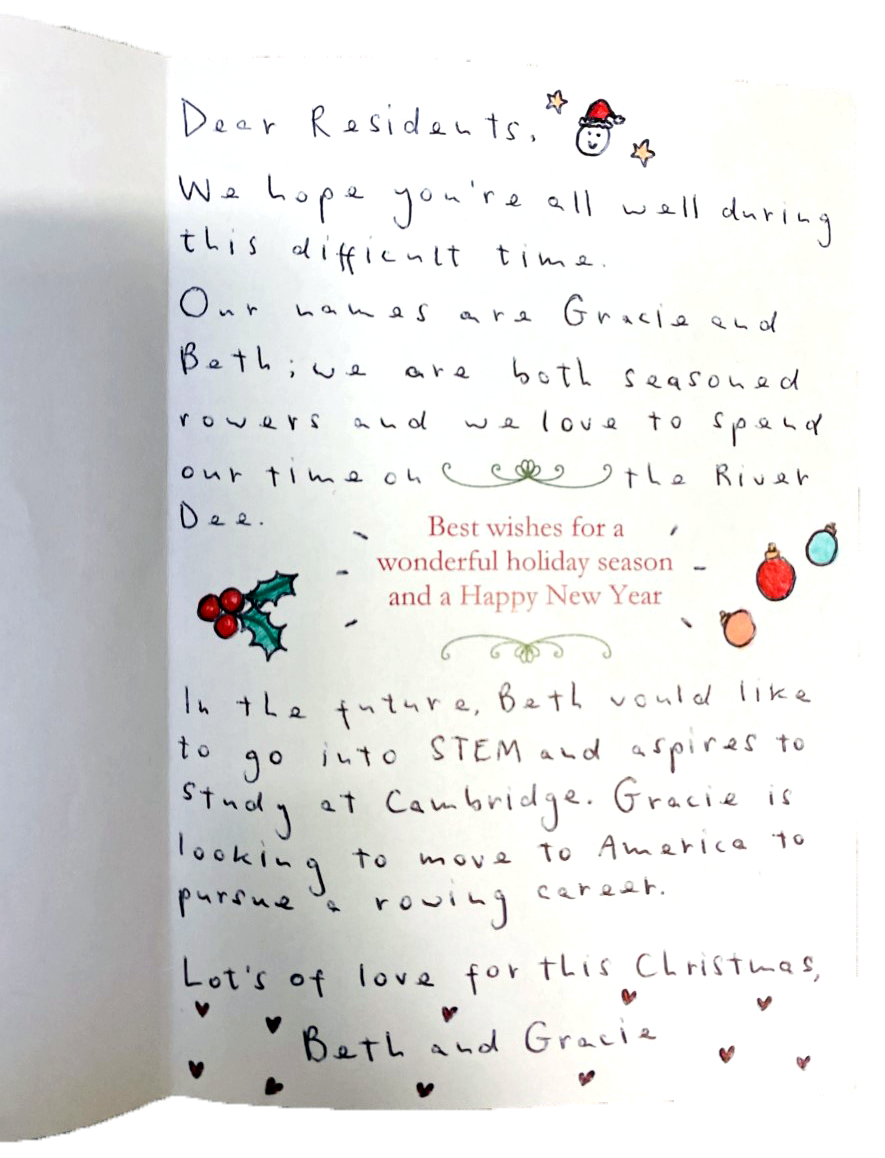 Dear Residents,
We hope you're all well during
this difficult time.
Our names are Gracie and
Beth; we are both seasoned
rowers and we love to spend
our time on the River
Dee.
Best wishes for a
wonderful holiday season
and a Happy New Year
In the future, Beth would like
to go into STEM and aspires to
study at Cambridge. Gracie is
looking to move to America to
pursue a rowing career.
Lot's of love for this Christmas,
Beth and Gracie